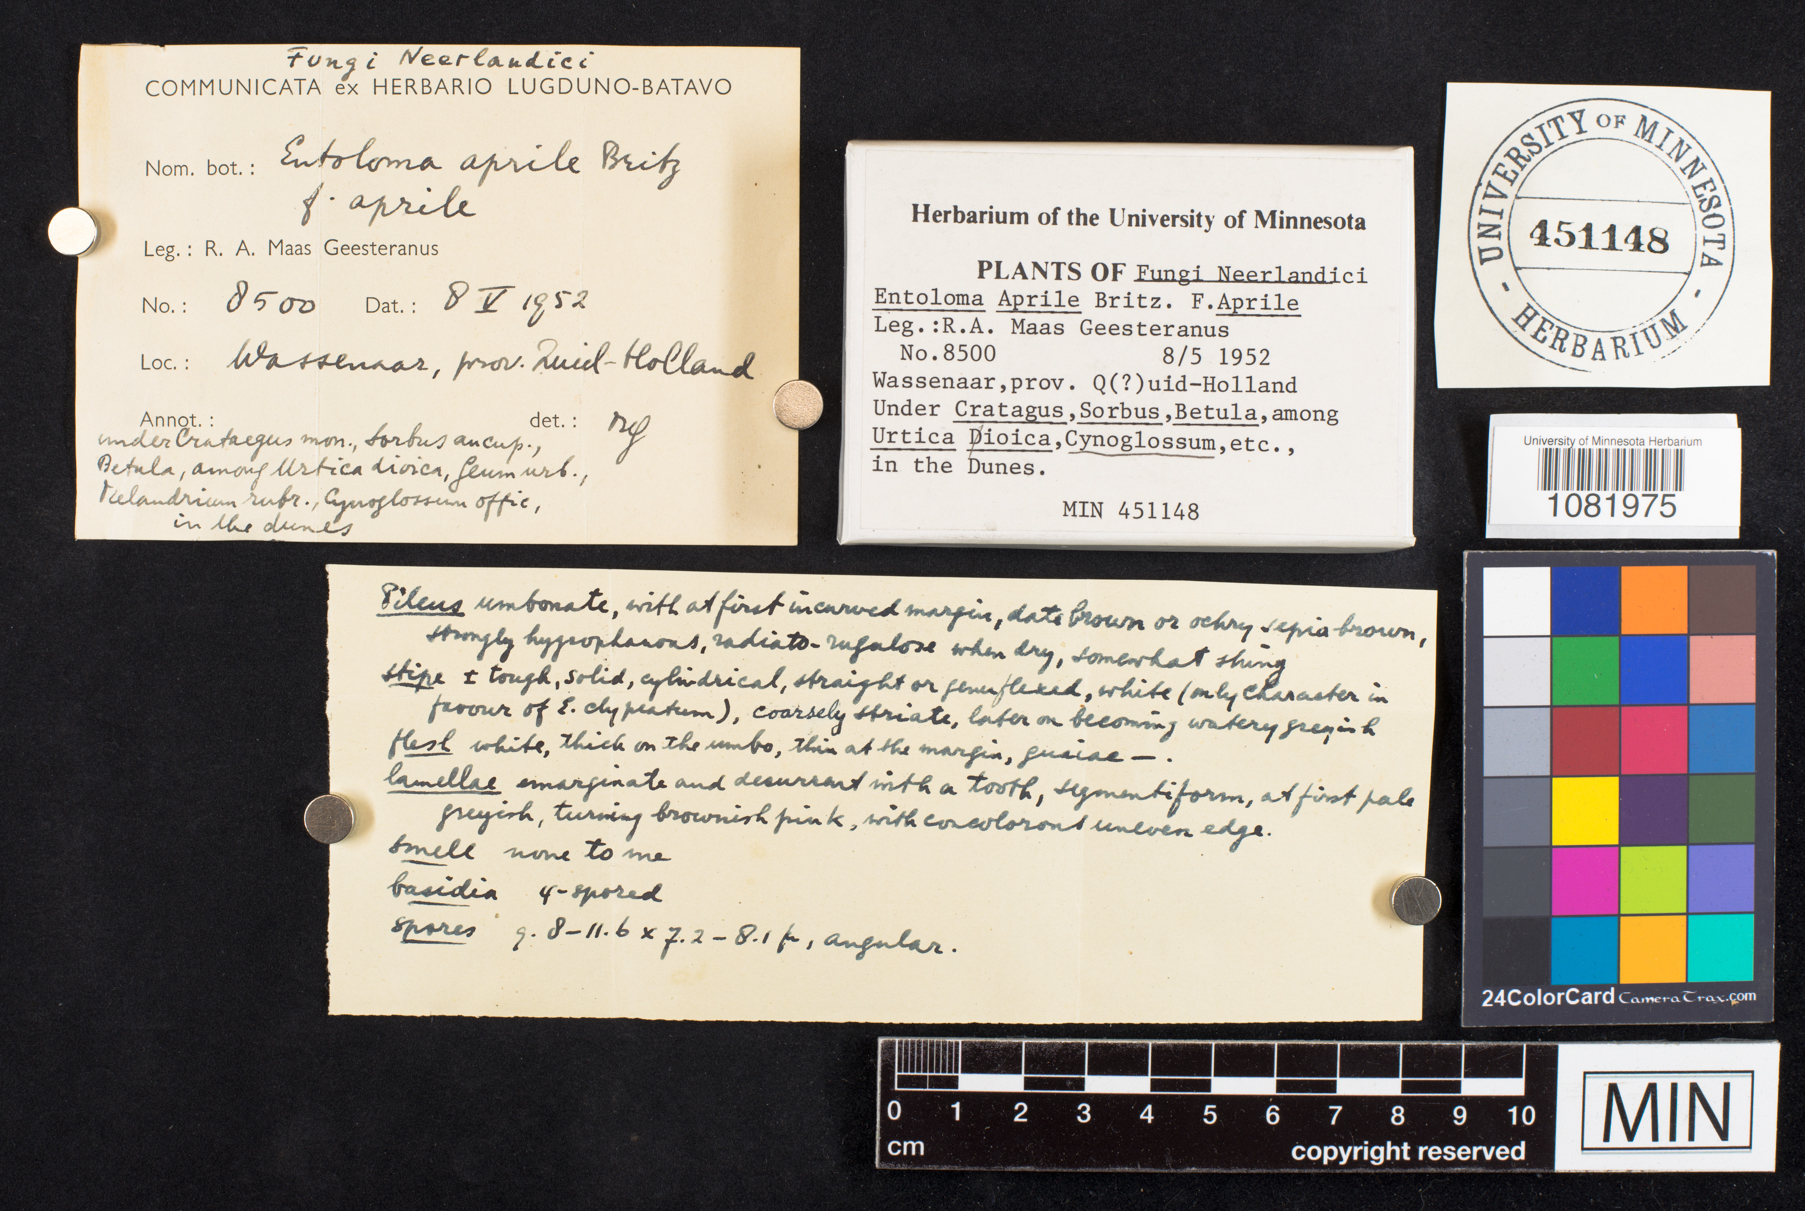 Fungi Neerlandici
COMMUNICATA ex HERBARIO LUGDUNO-BATAVO
Nom. bot.: Entoloma aprile Britz
f. aprile
Leg.: R. A. Maas Geesteranus
No.: 8500 Dat.: 8 V 1952
Loc.: Wassenaar, prov. Zuid-Holland
Annot.: det.: MG
under Crataegus mon., Sorbus aucup.,
Betula, among Urtica dioica, Geum urb.,
Melandrium rubr., Cynoglossum offic,
in the dunes
Herbarium of the University of Minnesota
PLANTS OF Fungi Neerlandici
Entoloma Aprile Britz. F.Aprile
Leg.:R.A. Maas Geesteranus
No.8500 8/5 1952
Wassenaar,prov. Q(?)uid-Holland
Under Cratagus,Sorbus,Betula,among
Urtica Dioica,Cynoglossum,etc.,
in the Dunes.
MIN 451148
UNIVERSITY OF MINNESOTA
451148
- HERBARIUM -
University of Minnesota Herbarium
1081975
Pileus umbonate, with at first incurved margin, date brown or ochry sepia brown,
strongly hygrophanous, radiato-rugulose when dry, somewhat shiny
stipe ± tough, solid, cylindrical, straight or genuflexed, white (only character in
favour of E. clypeatum), coarsely striate, later on becoming watery greyish
flesh white, thick on the umbo, thin at the margin, guaiac —.
lamellae emarginate and decurrent with a tooth, segmentiform, at first pale
greyish, turning brownish pink, with concolorous uneven edge.
smell none to me
basidia 4-spored
spores 9.8-11.6 x 7.2-8.1 µ, angular.
24ColorCard CameraTrax.com
0 1 2 3 4 5 6 7 8 9 10
cm copyright reserved
MIN